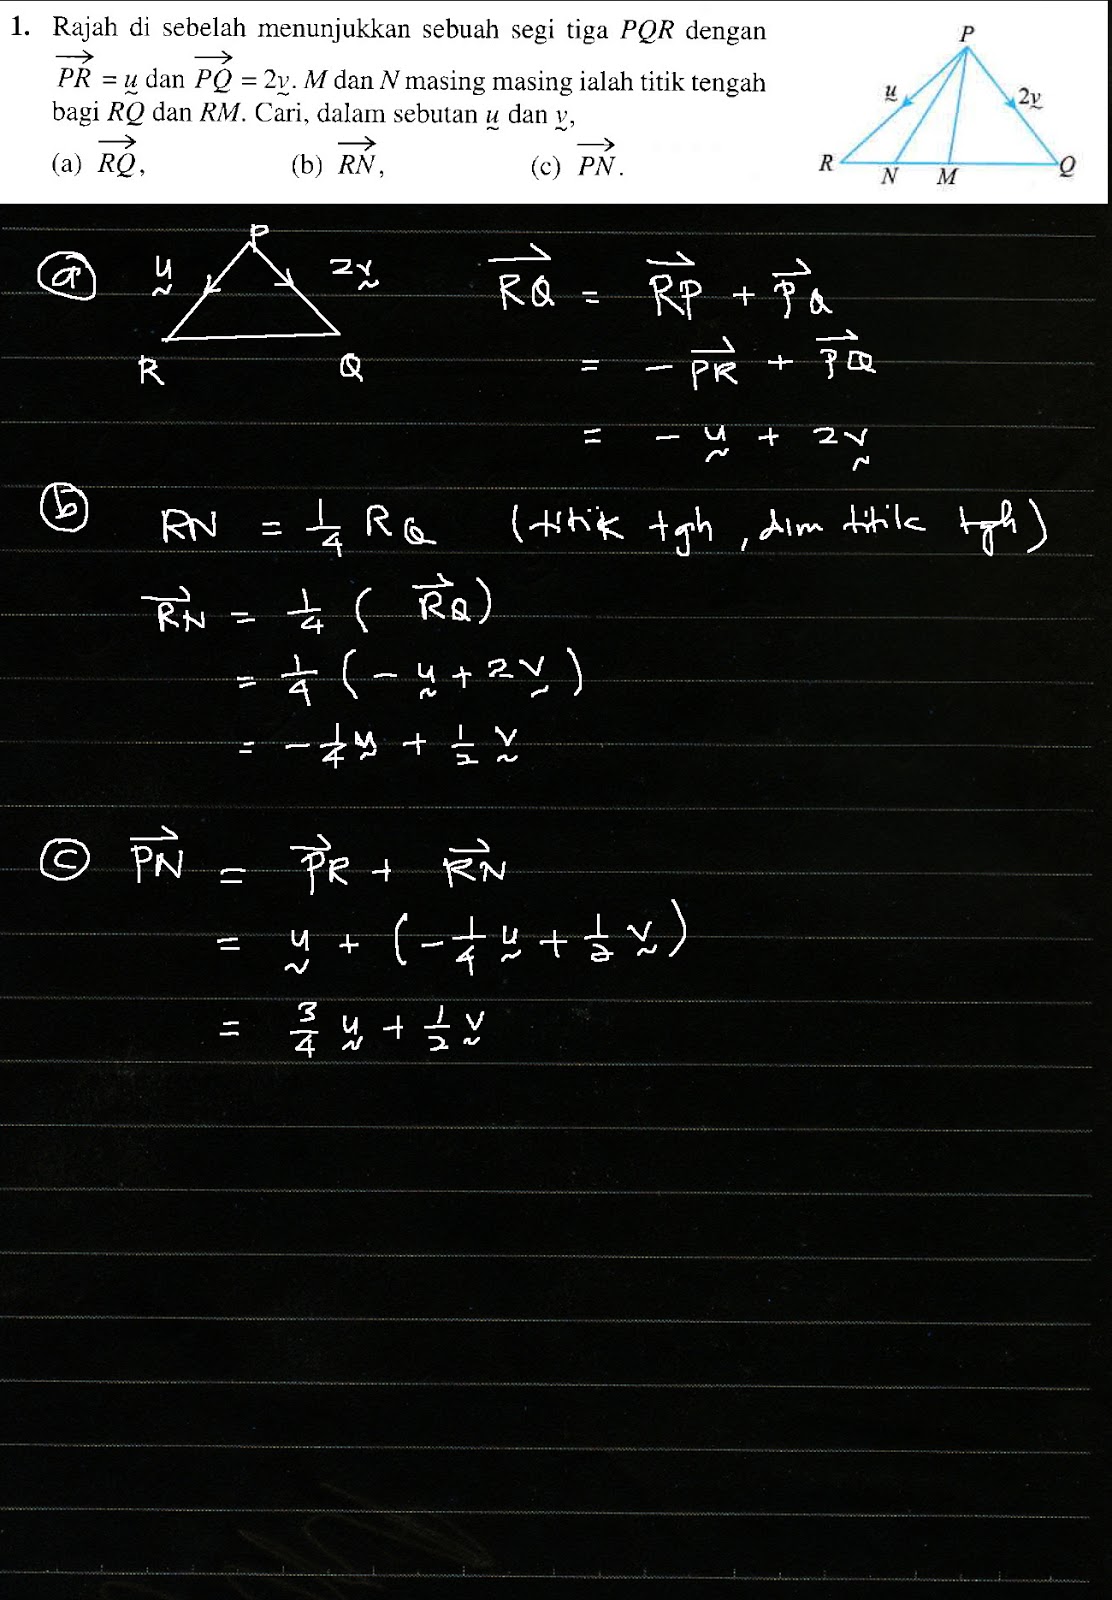 1. Rajah di sebelah menunjukkan sebuah segi tiga PQR dengan
→PR = ṵ dan →PQ = 2v̰. M dan N masing masing ialah titik tengah
bagi RQ dan RM. Cari, dalam sebutan ṵ dan v̰,
(a) →RQ, (b) →RN, (c) →PN.
P
ṵ 2v̰
R N M Q
(a) P
ṵ 2v̰
R Q
→RQ = →RP + →PQ
= - →PR + →PQ
= - ṵ + 2v̰
(b) RN = 1/4 RQ (titik tgh, dlm titik tgh)
→RN = 1/4 ( →RQ)
= 1/4 (- ṵ + 2v̰)
= - 1/4 ṵ + 1/2 v̰
(c) →PN = →PR + →RN
= ṵ + (- 1/4 ṵ + 1/2 v̰)
= 3/4 ṵ + 1/2 v̰